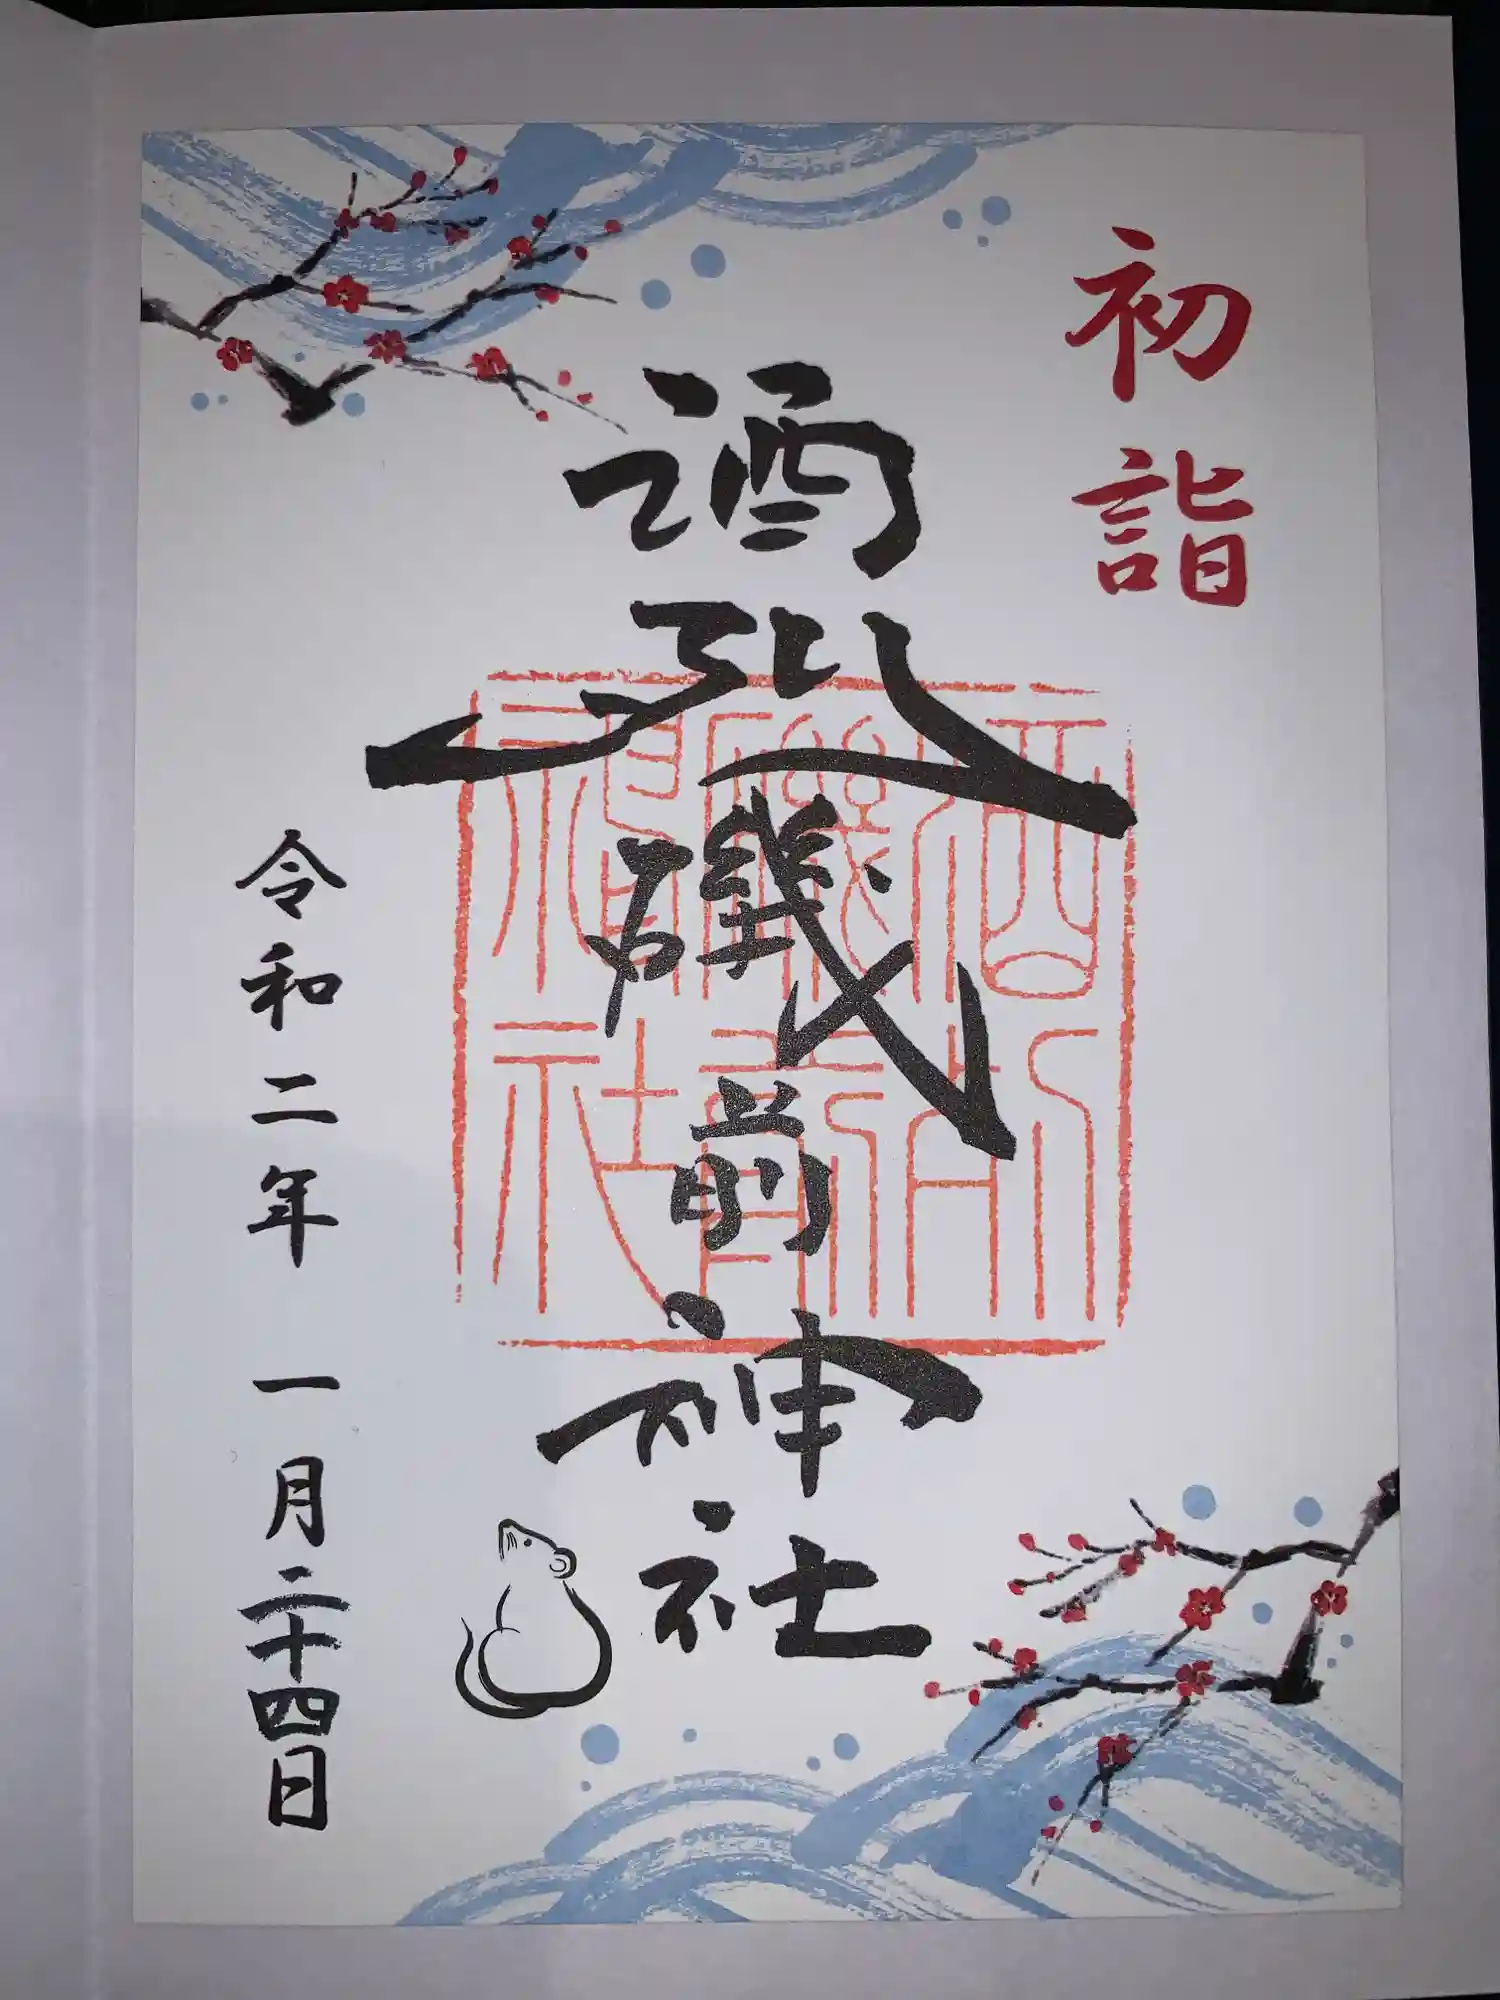 初詣
酒列磯前神社
酒列磯前神社
令和二年 一月二十四日